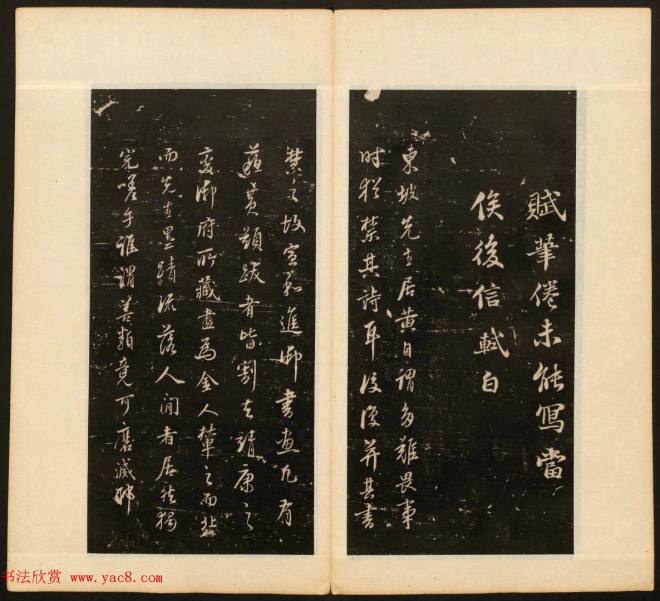 賦筆倦未能寫當
俟後信軾白
東坡先生居黃自謂多難畏事
時猶禁其詩耳後復并其書
禁之故宣和進御書畫凡有
蘇黃題跋者皆割去靖康之
變御府所藏盡為金人輦之而北
而先生墨蹟流落人間者居然獨
完嗟乎誰謂善類竟可磨滅邪
书法欣赏 www.yac8.com